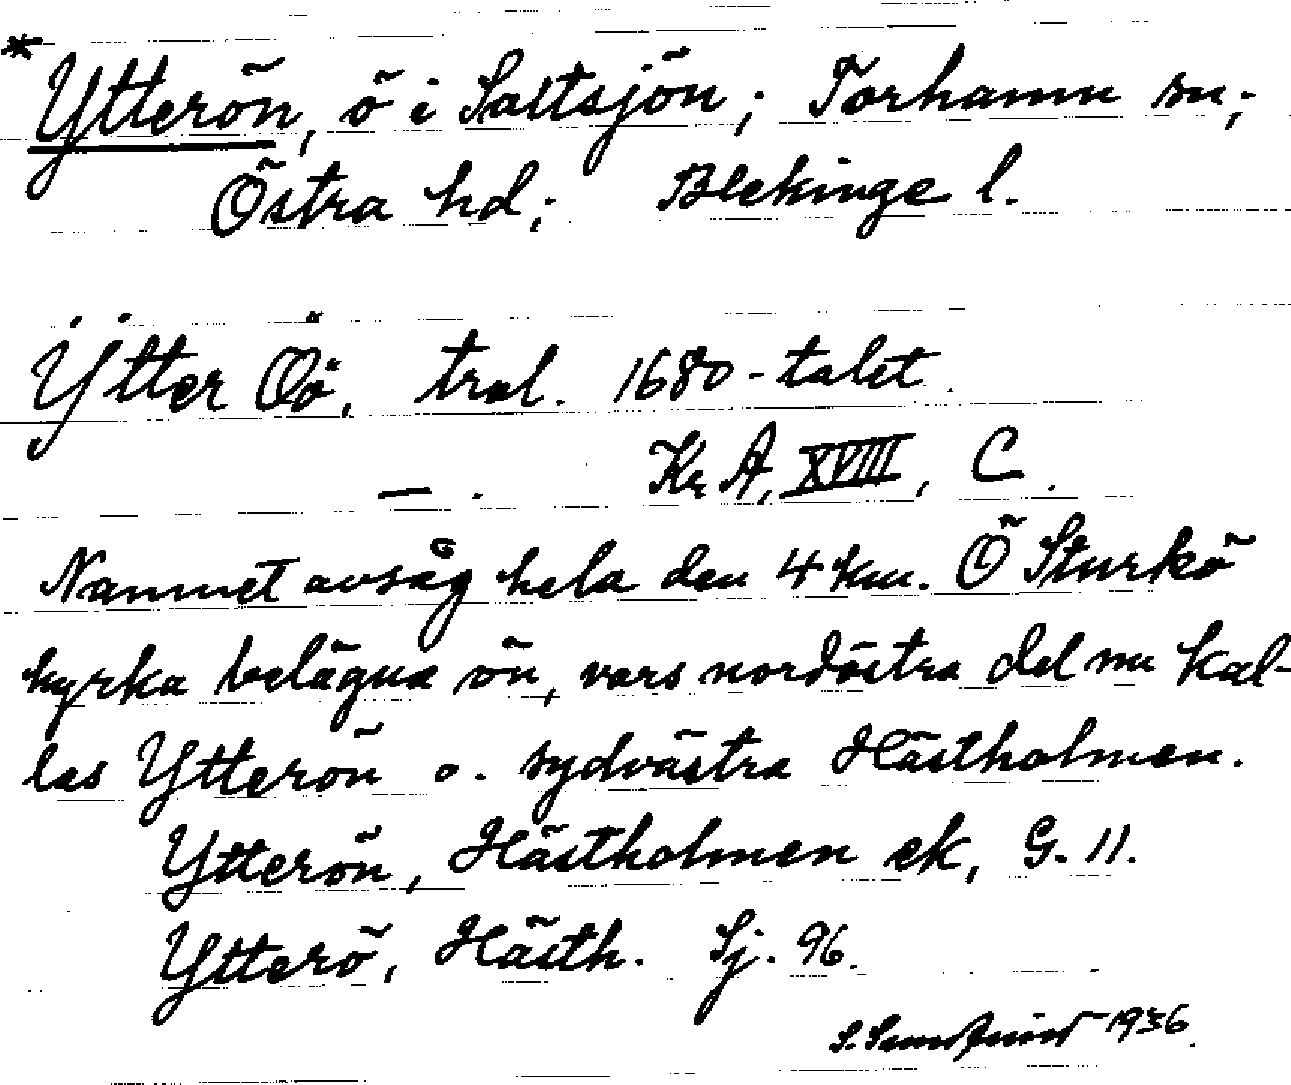 * Ytterön, ö i Saltsjön; Torhamn sn;
Östra hd; Blekinge l.
Ÿtter Öö, trol. 1680-talet.
—. Kr A, XVIII, C.
Namnet avsåg hela den 4 km. Ö Sturkö
kyrka belägna ön, vars nordöstra del nu kal-
las Ytterön o. sydvästra Hästholmen.
Ytterön, Hästholmen ek, G. 11.
Ytterö, Hästh. Sj. 96.
S. 1936.